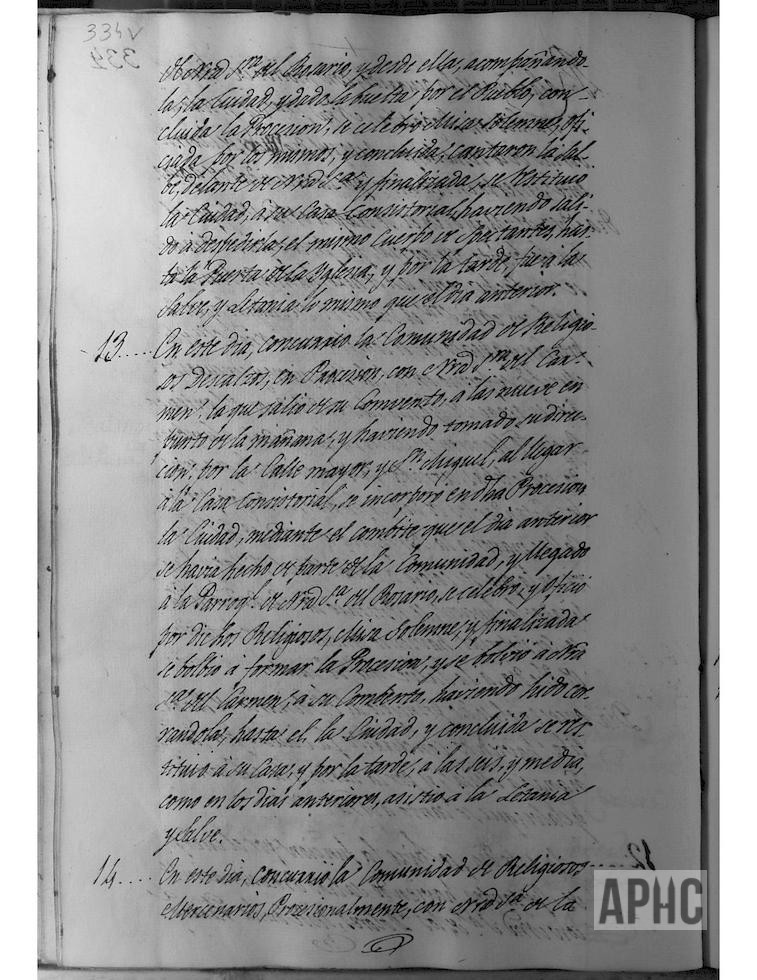 334v
334
de Nrâ Sra. del Rosario, y desde ella, acompañando
la, la Ciudad, y dada la buelta por el Pueblo, con-
cluida la Procesion, se celebró Misa Solemne, ofi-
ciada por los mismos, y concluida, cantaron la Sal-
be, delante de Nrâ Sra. y finalizada, se restituio
la Ciudad, a su Casa Consistorial, haviendo sali-
do a despedirla, el mismo Cuerpo de has-
ta la Puerta de la Iglesia, y por la tarde, fue a la
Salve, y Letania lo mismo que el dia anterior.
13.... En este dia, concurrio la Comunidad de Religio
sos Descalzos, en Procesion, con Nrâ Sra. del Car-
men, la que salio de su Comvento, a las nueve en
punto de la mañana, y haviendo tomado su direc-
cion, por la Calle mayor, y Sn. Miguel, al llegar
à la Casa Consistorial, se incorporò en dha Procesion,
la Ciudad, mediante el combite que el dia anterior
se havia hecho de parte de la Comunidad, y llegado
à la Parroql. de Nrâ Sa. del Rosario, se celebró, y Ofició
por dichos Religiosos, Misa Solemne, y finalizada
se bolbio à formar la Procesion, y se bolvió a Nrâ
Sra. del Carmen, à su Combento, haviendo hido
hasta el, la Ciudad, y concluida se res-
tituio à su Casa, y por la tarde, a las seis, y media,
como en los dias anteriores, asistio a la Letania
y Salve.
14.... En este dia, concurrio la Comunidad de Religiosos
Mercenarios, Procesionalmente, con Nrâ Sra. de la
APHC